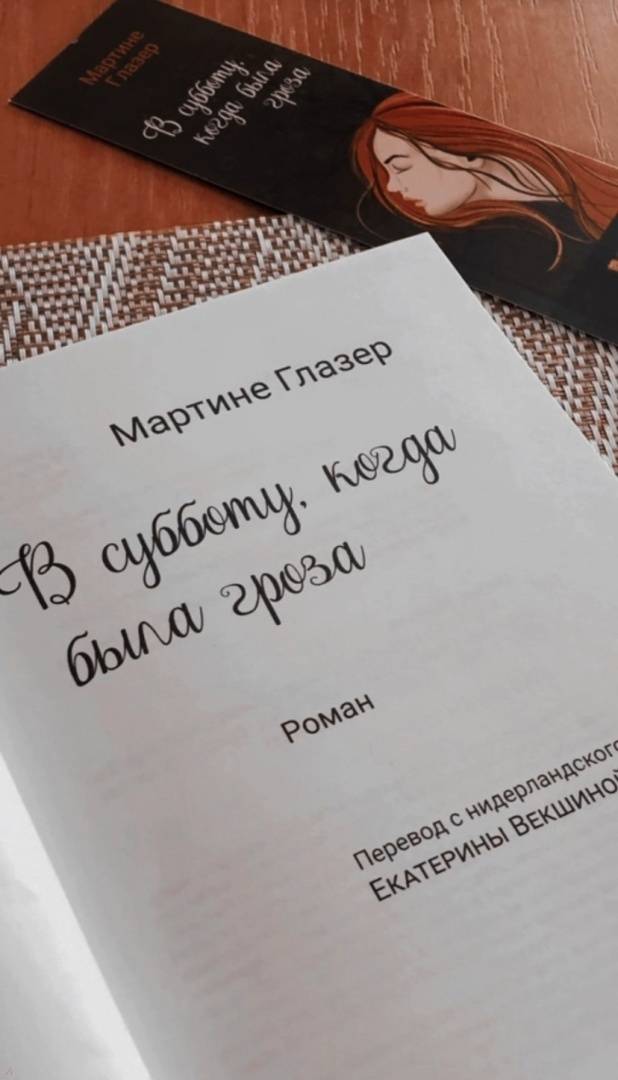 Мартине
Глазер
В субботу,
когда была
гроза
Мартине Глазер
В субботу, когда
была гроза
Роман
Перевод с нидерландского
ЕКАТЕРИНЫ ВЕКШИНОЙ